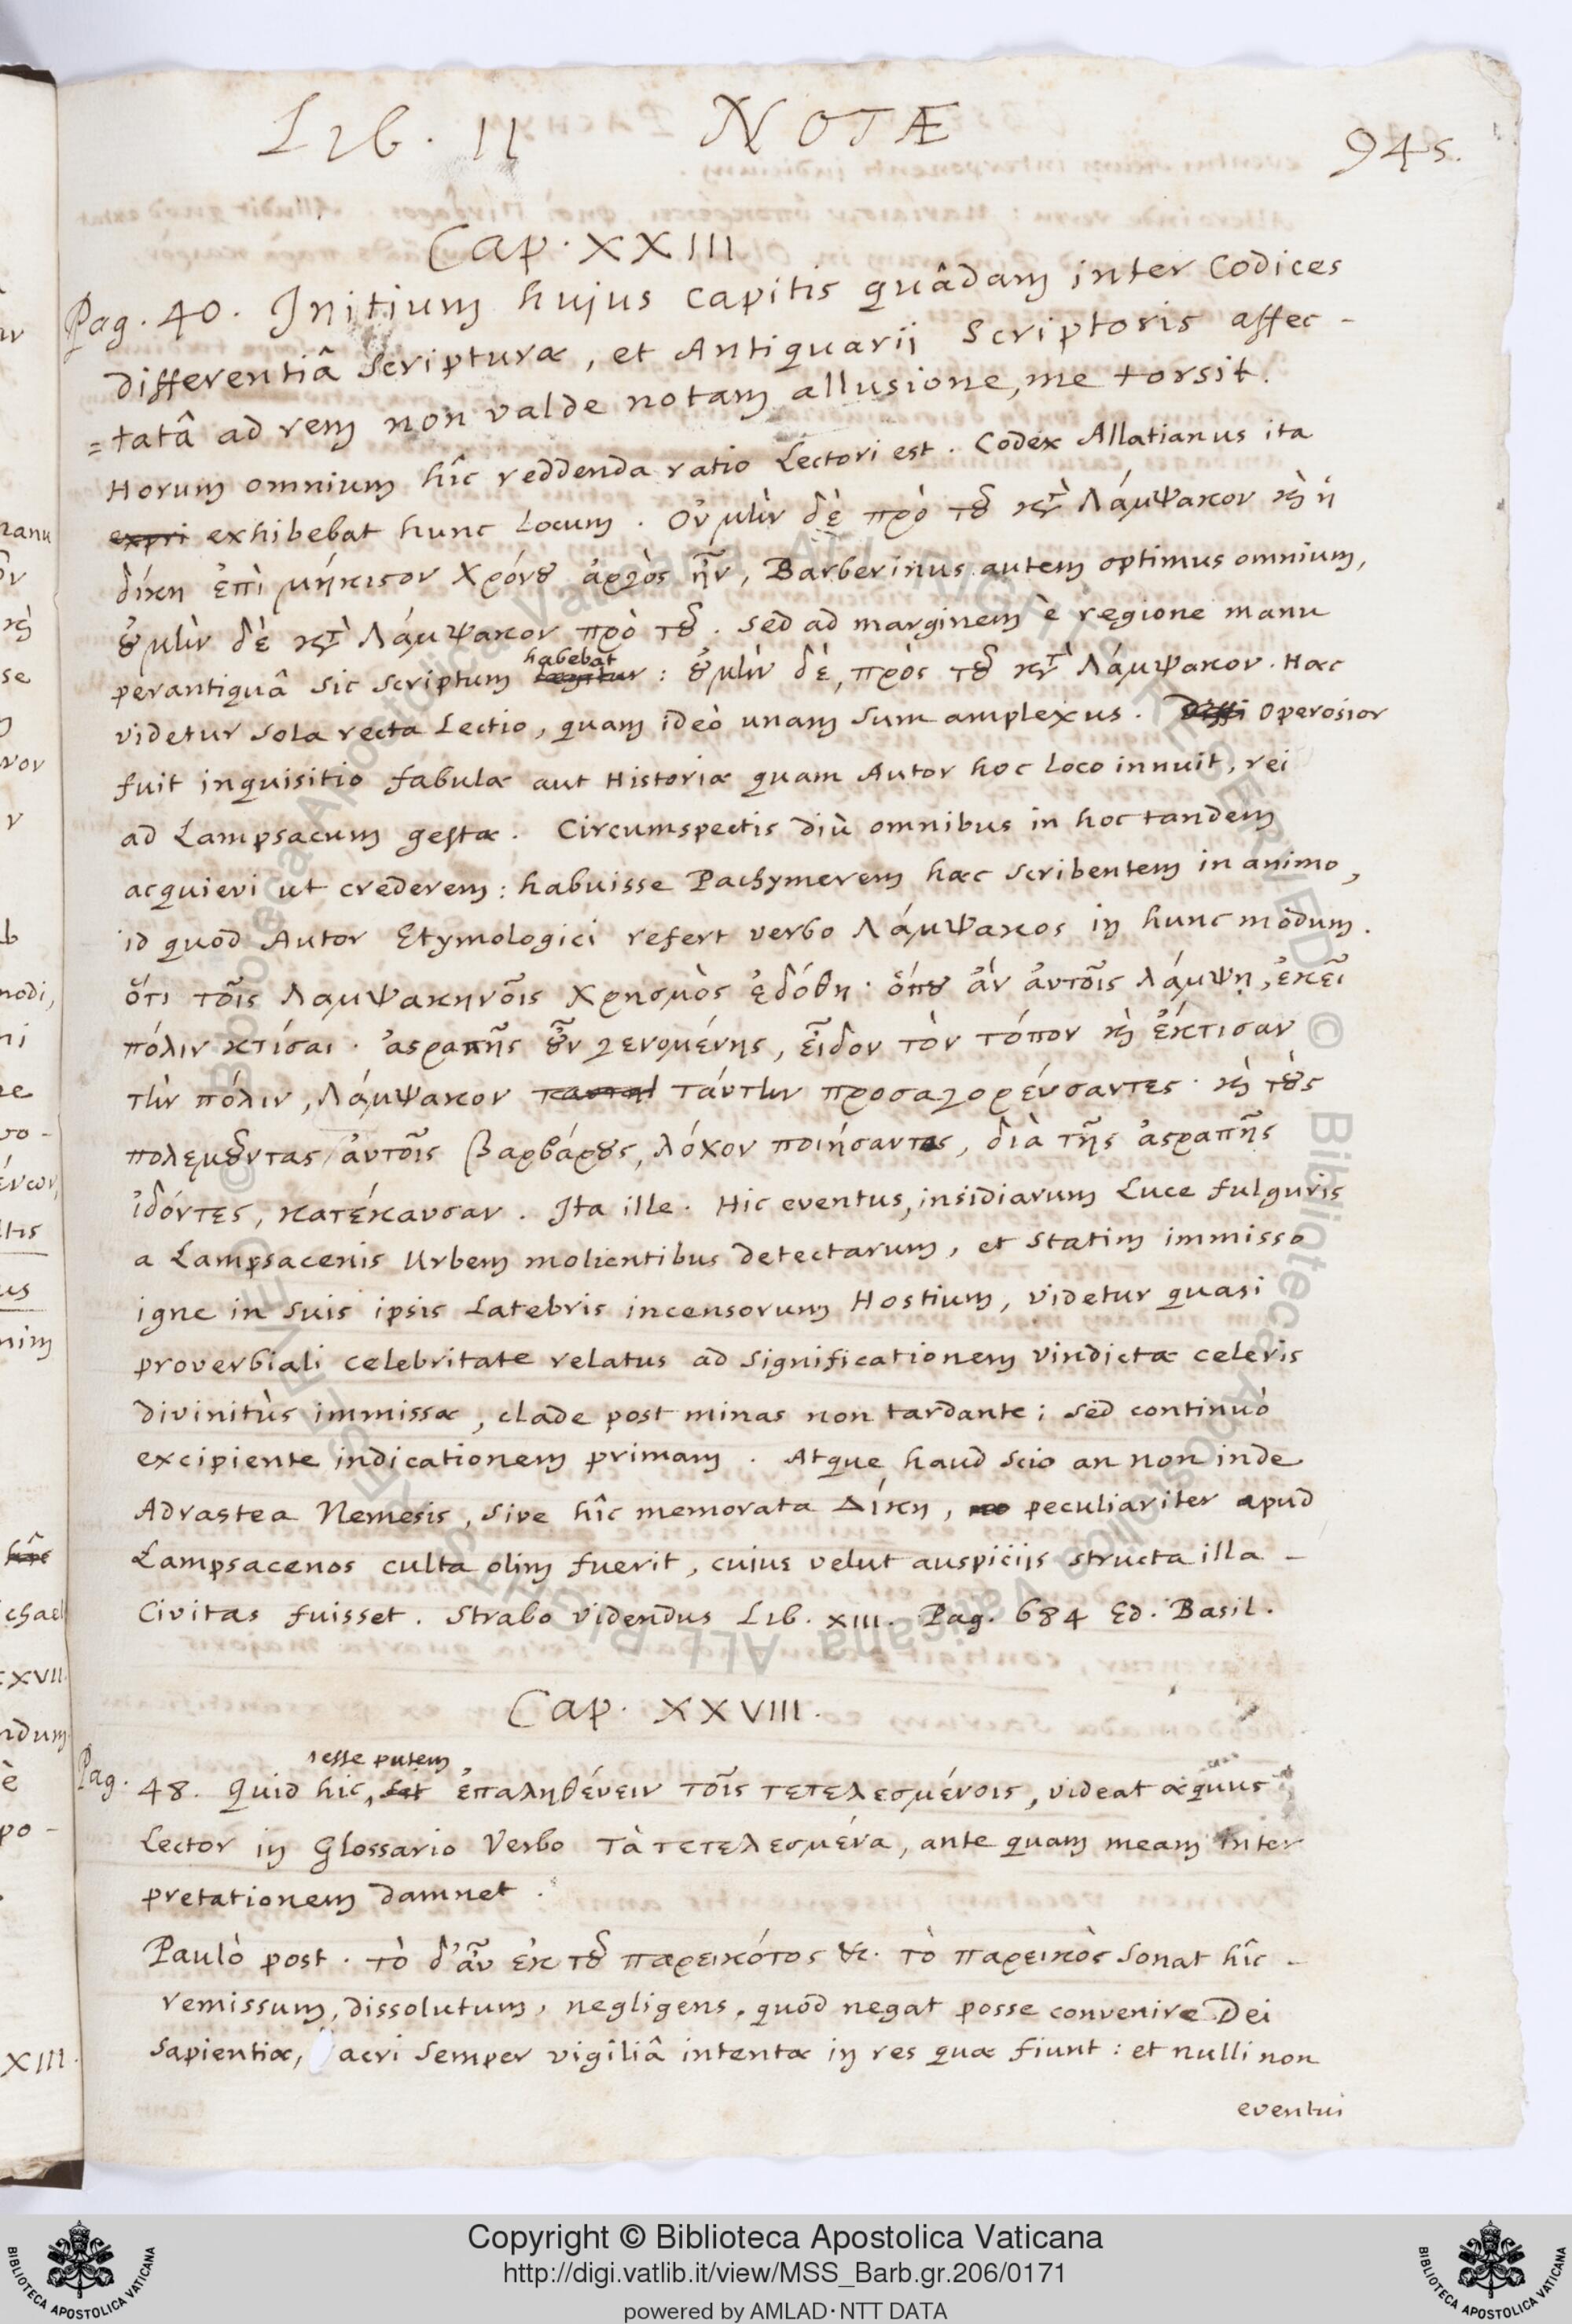 Lib. II NOTÆ 945.
Cap. XXIII
Pag. 40. Initium hujus capitis quâdam inter Codices
differentiâ scripturæ, et Antiquarij scriptoris affec-
=tatâ ad rem non valde notam allusione, me torsit.
Horum omnium hîc reddenda ratio Lectori est. Codex Allatianus ita
expri exhibebat hunc Locum. Οὐ μὴν δὲ πρὸ τοῦ κατὰ Λάμψακον καὶ ἡ
δίκη ἐπὶ μήκιστον χρόνου ἀργὸς ἦν, Barberinus autem optimus omnium,
οὐ μὴν δὲ κατὰ Λάμψακον πρὸ τοῦ. sed ad marginem è regione manu
perantiquâ sic scriptum habebat: οὐ μὴν δὲ, πρὸς τοῦ κατὰ Λάμψακον. Hæc
videtur sola recta Lectio, quam ideò unam sum amplexus. Diffi Operosior
fuit inquisitio fabulæ aut Historiæ quam Autor hoc loco innuit, rei
ad Lampsacum gestæ. Circumspectis diù omnibus in hoc tandem
acquievi ut crederem: habuisse Pachymerem hæc scribentem in animo,
id quod Autor Etymologici refert verbo Λάμψακος in hunc modum.
ὅτι τοῖς Λαμψακηνοῖς χρησμὸς ἐδόθη· ὅπου ἂν ἀυτοῖς λάμψῃ, ἐκεῖ
πόλιν κτίσαι. ἀστραπῆς οὖν γενομένης, εἶδον τὸν τόπον καὶ ἔκτισαν
τὴν πόλιν, Λάμψακον ταύτην προσαγορέυσαντες· καὶ τοὺς
πολεμοῦντας ἀυτοῖς βαρβάρους, λόχον ποιήσαντας, διὰ τῆς ἀστραπῆς
ἰδόντες, κατέκαυσαν. Ita ille. Hic eventus, insidiarum Luce fulguris
a Lampsacenis Urbem molientibus detectarum, et statim immisso
igne in suis ipsis Latebris incensorum Hostium, videtur quasi
proverbiali celebritate relatus ad significationem vindictæ celeris
divinitùs immissæ, clade post minas non tardante; sed continuò
excipiente indicationem primam. Atque haud scio an non inde
Adrastea Nemesis, sive hîc memorata Δίκη, peculiariter apud
Lampsacenos culta olim fuerit, cuius velut auspicijs structa illa
Civitas fuisset. Strabo videndus Lib. XIII. Pag. 684 Ed. Basil.
Cap. XXVIII.
esse putem
Pag. 48. Quid hic, ἐπαληθέυειν τοῖς τετελεσμένοις, videat æquus
Lector in Glossario Verbo τὰ τετελεσμένα, ante quam meam inter
pretationem damnet.
Paulò post. τὸ δ᾽ ἂυ ἐκ τοῦ παρεικότος &c. τὸ παρεικὸς sonat hîc
remissum, dissolutum, negligens. quod negat posse convenire Dei
sapientiæ, acri semper vigiliâ intentæ in res quæ fiunt: et nulli non
eventui
Copyright © Biblioteca Apostolica Vaticana
http://digi.vatlib.it/view/MSS_Barb.gr.206/0171
powered by AMLAD·NTT DATA